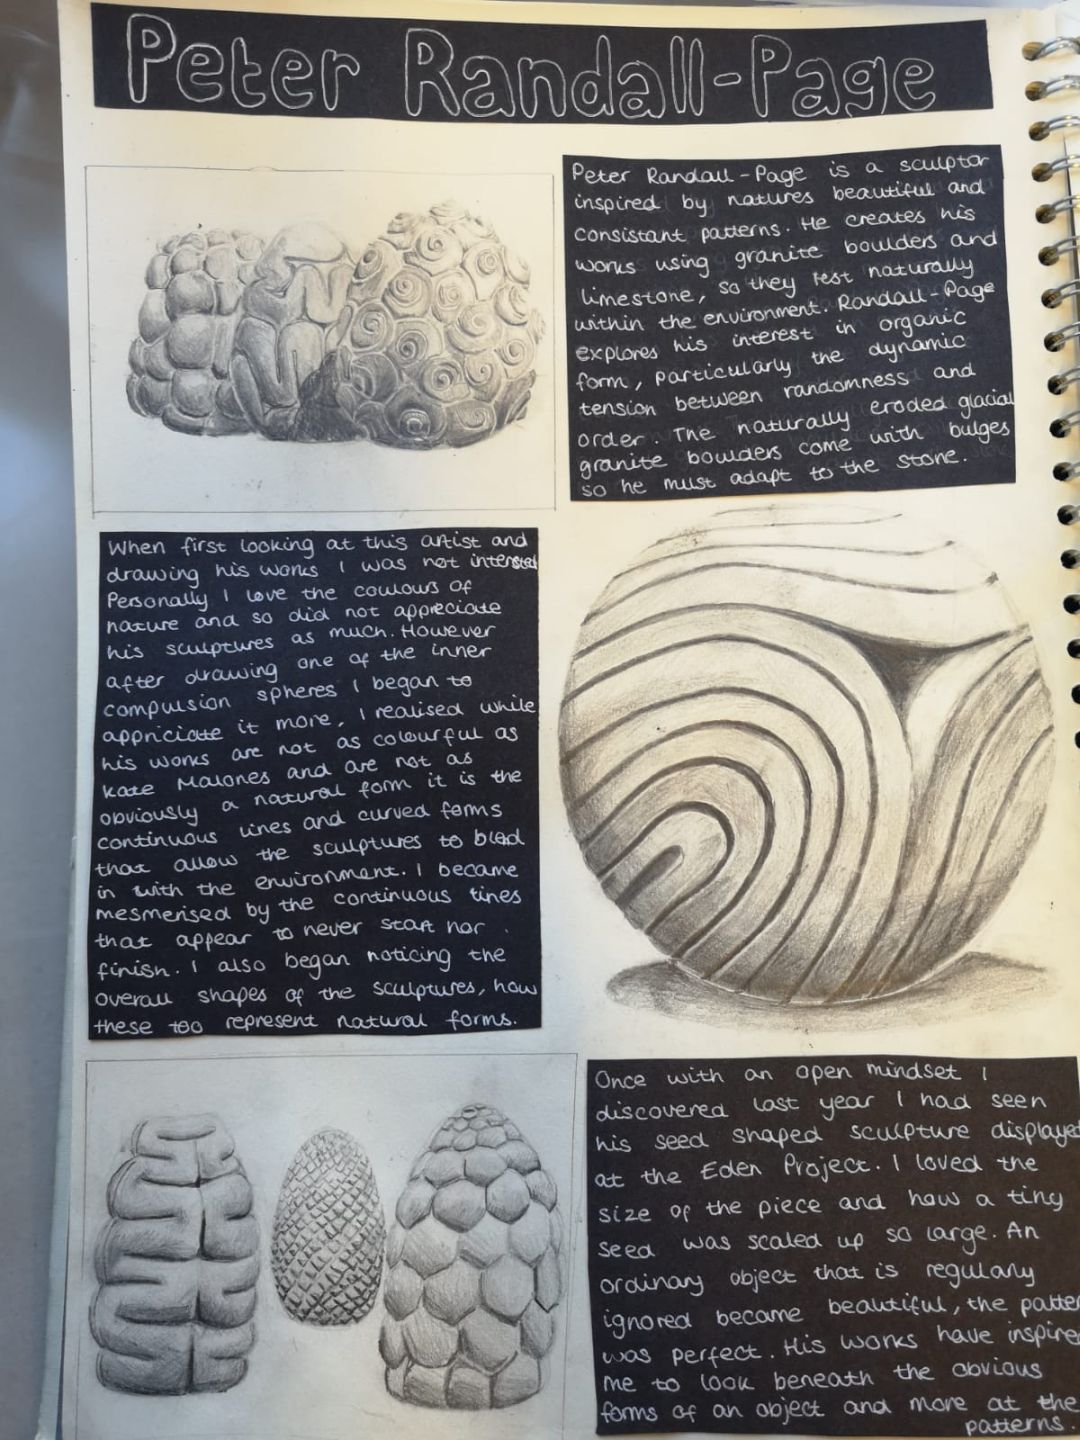 Peter Randall-Page
Peter Randall-Page is a sculptor
inspired by natures beautiful and
consistant patterns. He creates his
works using granite boulders and
limestone, so they rest naturally
within the environment. Randall-Page
explores his interest in organic
form, particularly the dynamic
tension between randomness and
order. The naturally eroded glacial
granite boulders come with bulges
so he must adapt to the stone.
When first looking at this artist and
drawing his works I was not interested
Personally I love the colours of
nature and so did not appreciate
his sculptures as much. However
after drawing one of the inner
compulsion spheres I began to
appriciate it more, I realised while
his works are not as colourful as
Kate Malones and are not as
obviously a natural form it is the
continuous lines and curved forms
that allow the sculptures to bled
in with the environment. I became
mesmerised by the continuous lines
that appear to never start nor
finish. I also began noticing the
overall shapes of the sculptures, how
these too represent natural forms.
Once with an open mindset I
discovered last year I had seen
his seed shaped sculpture displayed
at the Eden Project. I loved the
size of the piece and how a tiny
seed was scaled up so large. An
ordinary object that is regularly
ignored became beautiful, the patter
was perfect. His works have inspire
me to look beneath the obvious
forms of an object and more at the
patterns.